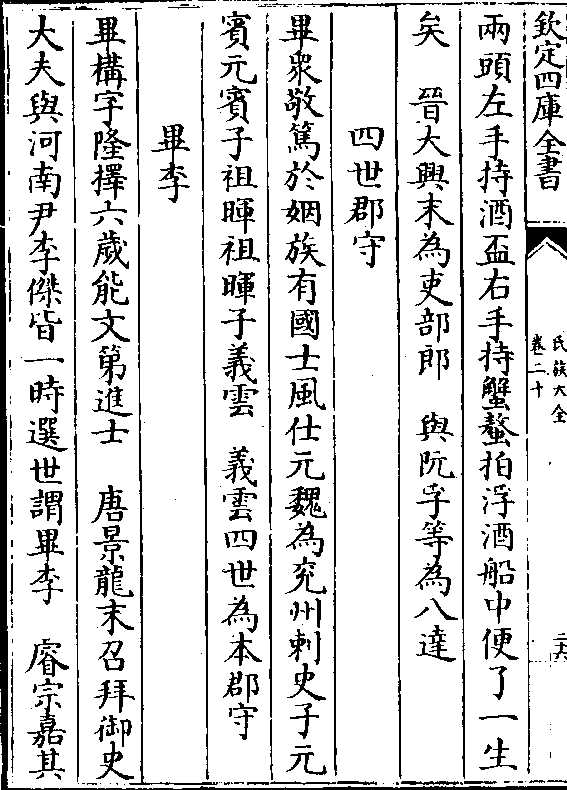 欽定四庫全書
氏族大全
卷二十
二六
兩頭左手持酒盃右手持蟹螯拍浮酒船中便了一生
矣　晉大興末為吏部郎　與阮孚等為八達
四世郡守
畢衆敬篤於姻族有國士風仕元魏為兖州刺史子元
賓元賓子祖暉祖暉子義雲　義雲四世為本郡守
畢李
畢構字隆擇六歲能文第進士　唐景龍末召拜御史
大夫與河南尹李傑皆一時選世謂畢李　睿宗嘉其